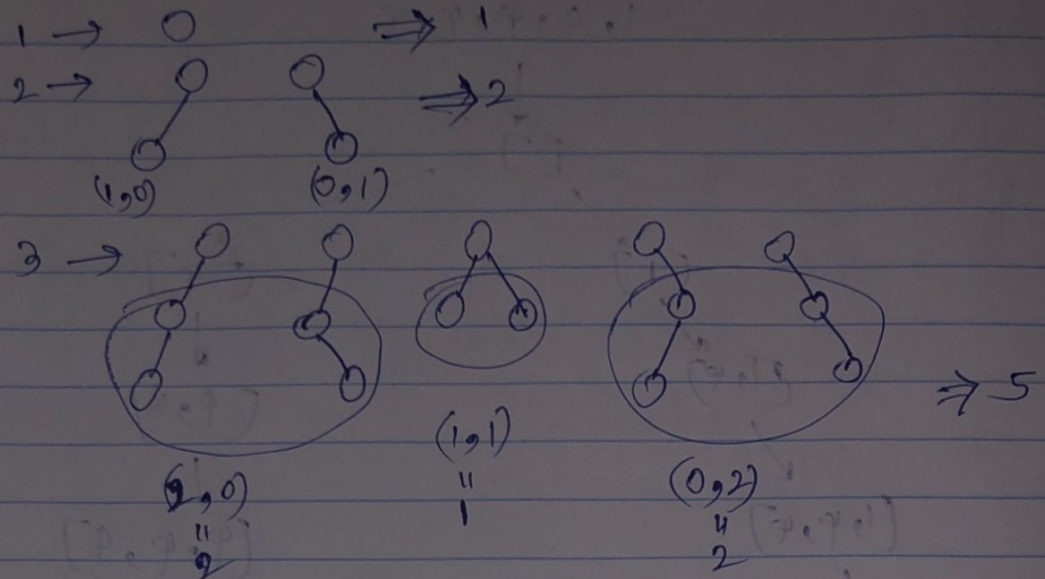 1 → ⇒ 1
2 → ⇒ 2
(1,0) (0,1)
3 →
⇒ 5
(2,0) (1,1) (0,2)
" " "
2 1 2